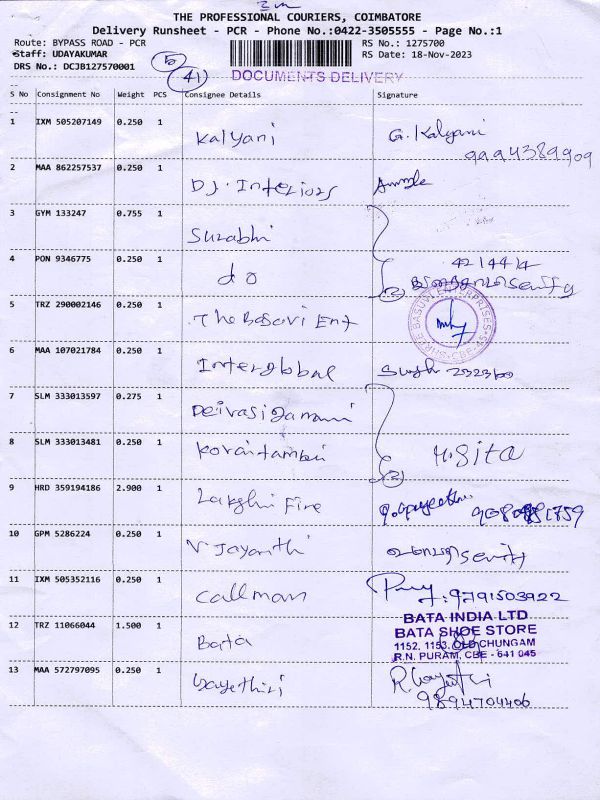 THE PROFESSIONAL COURIERS, COIMBATORE
Delivery Runsheet - PCR - Phone No.:0422-3505555 - Page No.:1
Route: BYPASS ROAD - PCR RS No.: 1275700
Staff: UDAYAKUMAR RS Date: 18-Nov-2023
DRS No.: DCJB127570001 5
41 DOCUMENTS DELIVERY
S No Consignment No Weight PCS Consignee Details Signature
1 IXM 505207149 0.250 1 Kalyani G. Kalyani
9994389909
2 MAA 862257537 0.250 1 DJ. Interiors
3 GYM 133247 0.755 1 Surabhi
4 PON 9346775 0.250 1 do 4214414
2
5 TRZ 290002146 0.250 1 The Basuvi Ent
SHREE BASUVI ENTERPRISES CBE-45
6 MAA 107021784 0.250 1 Interglobal
7 SLM 333013597 0.275 1 Deivasigamani
8 SLM 333013481 0.250 1 M. Gita
2
9 HRD 359194186 2.900 1 Lakshi Fire
10 GPM 5286224 0.250 1 V. Jayanthi
11 IXM 505352116 0.250 1 Callman : 9791503922
12 TRZ 11066044 1.500 1 Bata
BATA INDIA LTD
BATA SHOE STORE
1152, 1153, OLD CHUNGAM
R.N. PURAM, CBE - 641 045
13 MAA 572797095 0.250 1 Gayethiri
9894704406